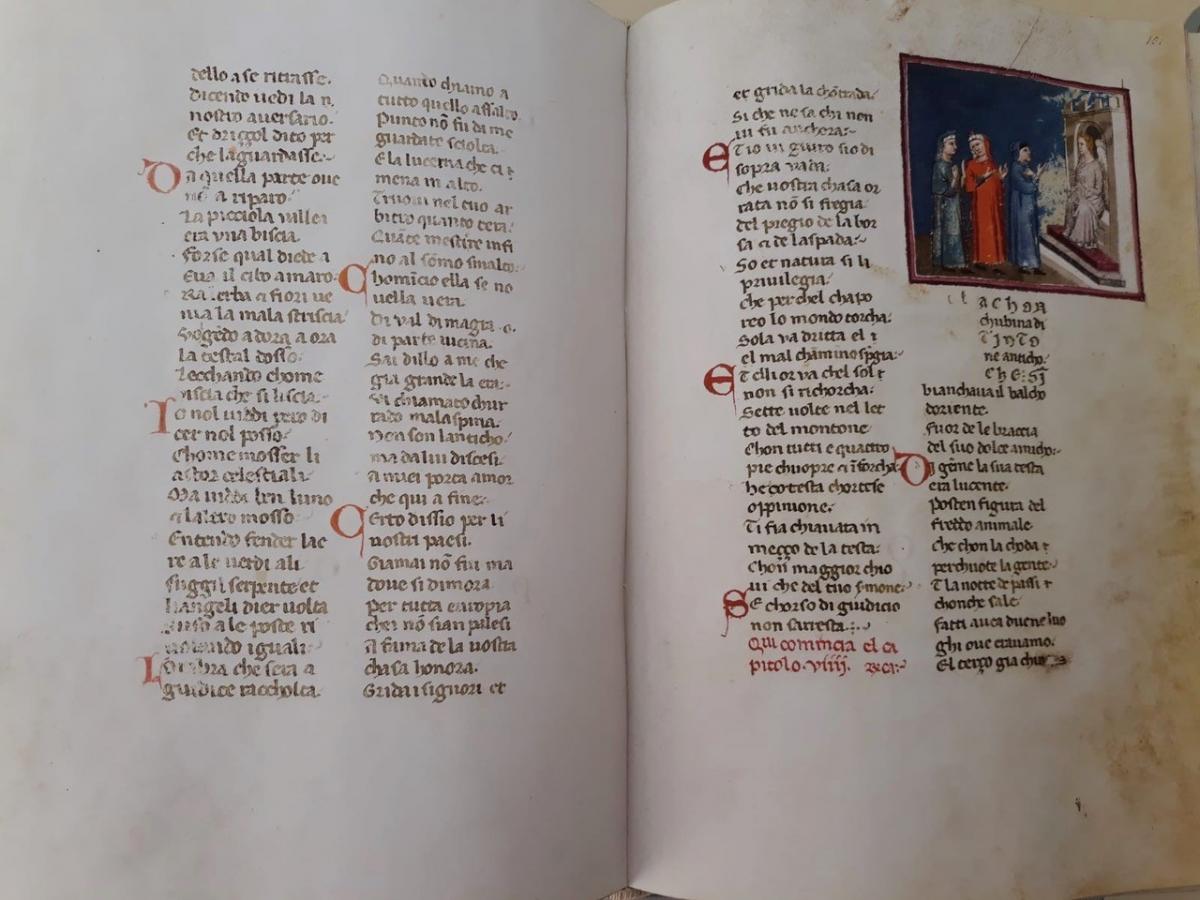 dello a se ritrasse.
Dicendo uedi la n.
nostro auersario.
Et driççol dito per
che la guardasse.
Da quella parte oue
nõ a riparo.
La picciola ualle i
era vna biscia.
Forse qual diede a
Eua il cibo amaro.
Ra lerba e fiori ue
nia la mala striscia
Volgẽdo adora a ora
la testal dosso.
Lecchando chome
biscia che si liscia.
Io nol uiddi pero di
cer nol posso.
Chome mosser li
astor celestiali
Ma uiddi ben luno
e laltro mosso.
Entendo fender lae
re a le uerdi ali
fuggil serpente et
langeli dier uolta
suso a le poste ri
uolando iguali.
Lombra che sera a
giudice raccholta.
Quando chiamo a
tutto quello assalto.
Punto nõ fu di me
guardate sciolta.
E la lucerna che ti
mena in alto.
Truoui nel tuo ar
bitro quanto cera.
Quãte mestire infi
no al sõmo smalto.
Chomĩcio ella se no
uella uera.
Di ual di magra o.
di parte uicina.
Sai dillo a me che
gia grande la era.
Fui chiamato chur
rado malaspina.
Non son lanticho.
ma da lui discesi
a miei porta amor
che qui a fine.
Certo dissio per li
uostri paesi.
Giamai nõ fui ma
doue si dimora
per tutta europia
chei nõ sian palesi
a fama de la uostra
chasa honora.
Grida i signori et
et grida la chõtrada.
Si che ne sa chi non
ui fu anchora.
Et io ui giuro sio di
sopra vada.
Che uostra chasa or
rata nõ si fregia
del pregio de la bor
sa e de la spada.
So et natura si li
priuilegia.
che perchel chapo
reo lo mondo torcha.
Sola va dritta el
el mal chãmino spgia.
Et elli or va chel sol
non si richorcha.
Sette uolte nel let
to del montone
Chon tutti e quattro
pie chuopre e ĩforcha
he cotesta chortese
oppinione.
Ti fia chiauata in
meçço de la testa.
Choñ maggior chio
ui che del tuo ymone.
Se chorso di giudicio
non sarresta.
Qui comincia el ca
pitolo. viiij.
LA CHON
chubina di
TINTO
ne anticho.
CHE: SĨ
bianchaua il balcho
doriente.
Fuor de le braccia
del suo dolce amicho.
Di gẽme la sua testa
era lucente.
Posten figura del
freddo animale.
Che chon la choda
perchuote la gente.
La notte de passi
chonche sale.
fatti auea duene luo
ghi oue erauamo.
El terço gia chi